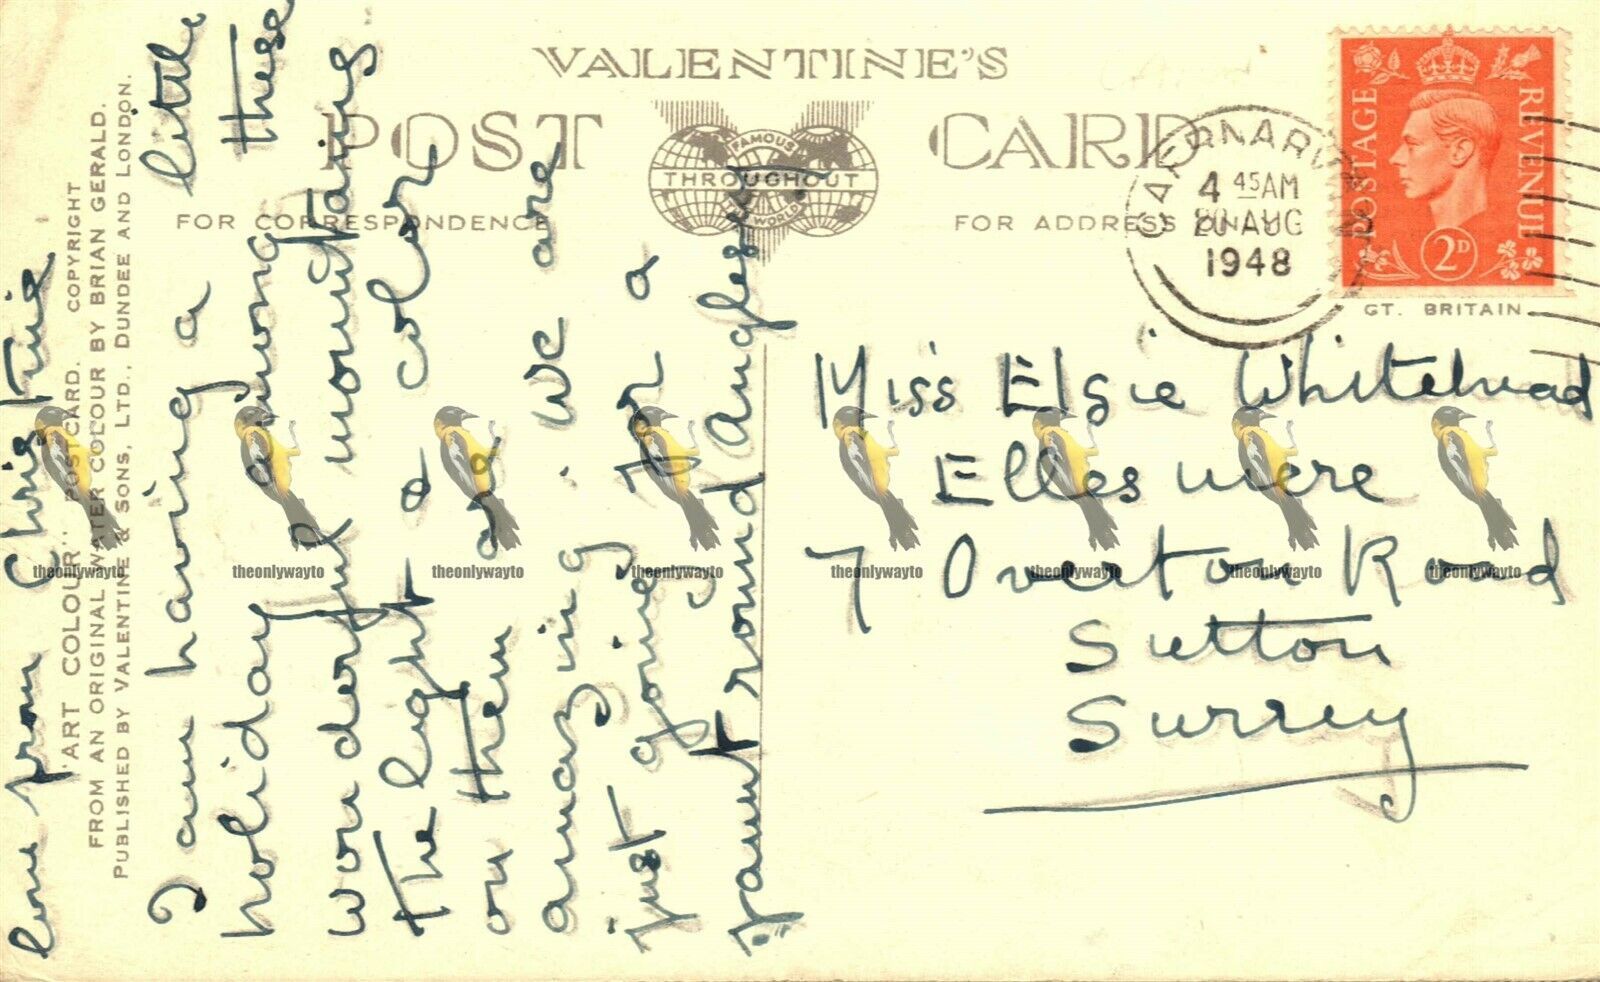 VALENTINE'S
POST CARD
FAMOUS
THROUGHOUT
THE WORLD
FOR CORRESPONDENCE
FOR ADDRESS ONLY
CAERNARVON
4 45AM
20 AUG
1948
POSTAGE REVENUE
2D
GT. BRITAIN
'ART COLOUR' POSTCARD. COPYRIGHT
FROM AN ORIGINAL WATER COLOUR BY BRIAN GERALD.
PUBLISHED BY VALENTINE & SONS, LTD., DUNDEE AND LONDON.
I am having a little
holiday among these
wonderful mountains
The light & colors
on them are
amazing. We are
just going for a
jaunt round Anglesey
love from Chris
Miss Elsie Whitehead
Ellesmere
7 Overton Road
Sutton
Surrey
theonlywayto theonlywayto theonlywayto theonlywayto theonlywayto theonlywayto theonlywayto theonlywayto